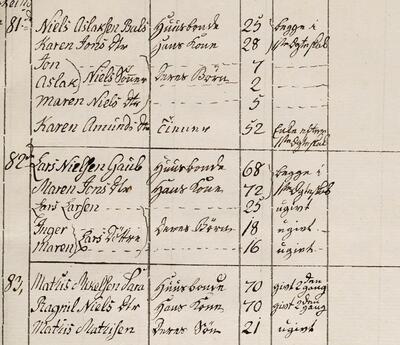 81. Niels Aslaksen Bals Huusbonde 25 begge i
Karen Jons dtr Hans Kone 28 1ste Egteskab
Jon 7
Aslak Niels Sönner Deres Börn 2
Maren Niels dtr 5
Karen Amunds dtr 52 Enke efter
1ste Egteskab
82 Lars Nielsen Gaub Huusbonde 68 begge i
Maren Jons dtr Hans Kone 72 1ste Egteskab
Larsen 25 ugivt
Inger Lars Döttre Deres Börn 18 ugivt
Maren 16 ugivt
83, Mathis Huusbonde 70 givt 2den gang
Ragnil Niels dtr Hans Kone 70 givt 2den gang
Mathis Mathisen Deres Sön 21 ugivt